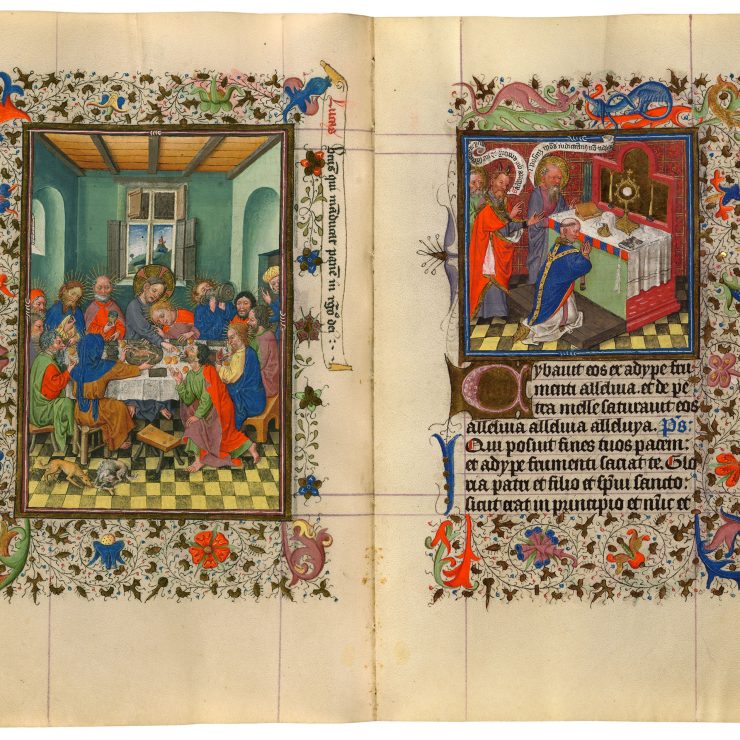 Lucas
Beat' qui māducat panē in regō dei :-
Cybauit eos ex adype fru
menti alleluia. et de pe
tra melle saturauit eos
alleluia alleluia alleluya. Ps:
Qui posuit fines tuos pacem:
et adype frumenti saciat te. Glo
ria patri et filio et spūi sancto:
sicut erat in principio et nūc et